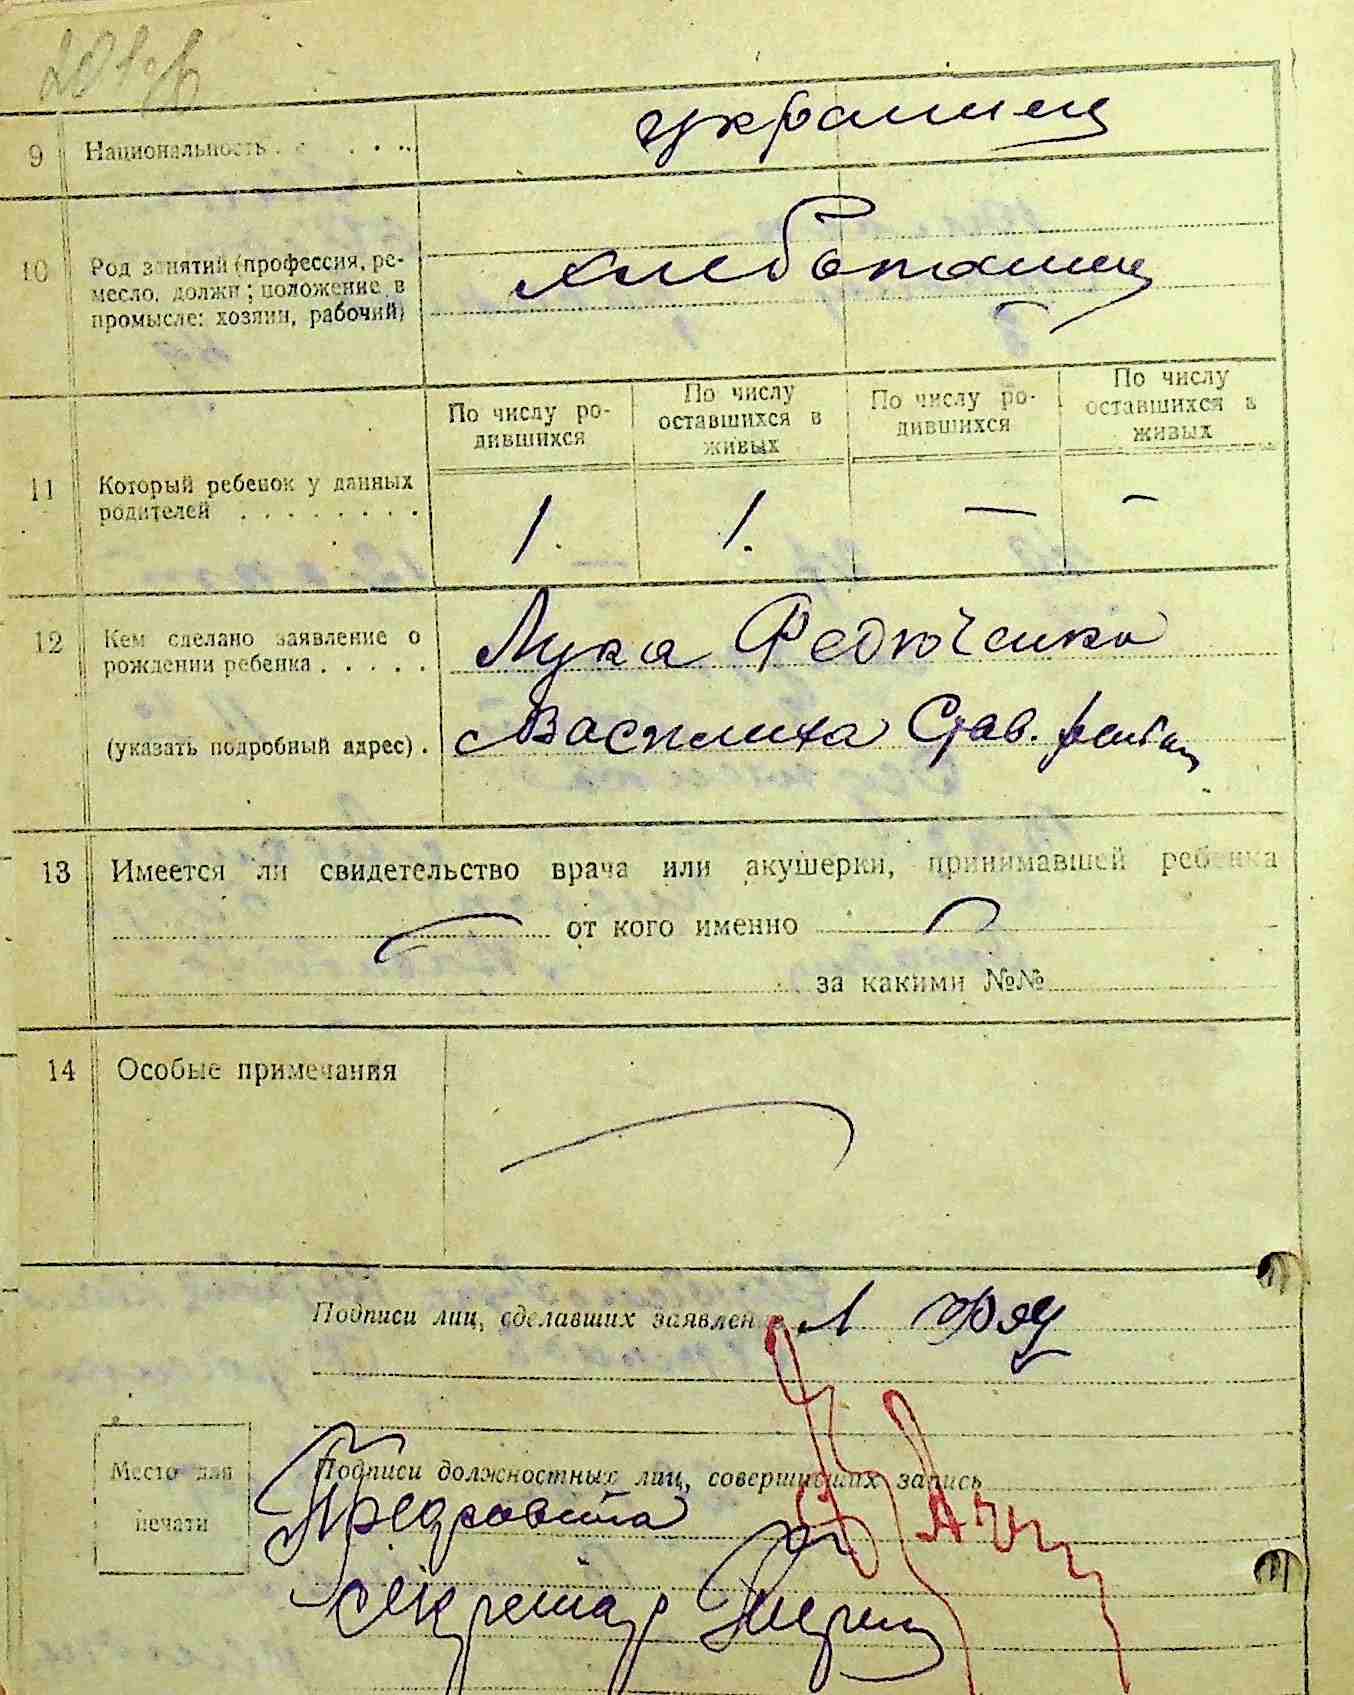 9 Национальность украинец
10 Род занятий (профессия, ре-
месло, должн; положение в
промысле: хозяин, рабочий)
хлебопашец
По числу ро-
дившихся
По числу
оставшихся в
живых
По числу ро-
дившихся
По числу
оставшихся в
живых
11 Который ребенок у данных
родителей . . . . . . . .
1. 1. — —
12 Кем сделано заявление о
рождении ребенка . . . . .
Лука Федюченко
(указать подробный адрес) .
Василиха Став.
13 Имеется ли свидетельство врача или акушерки, принимавшей ребенка
от кого именно
за какими №№
14 Особые примечания
Подписи лиц, сделавших заявлен Л Фед
Место для
печати
Подписи должностных лиц, совершивших запись
Предсовета
Секретар